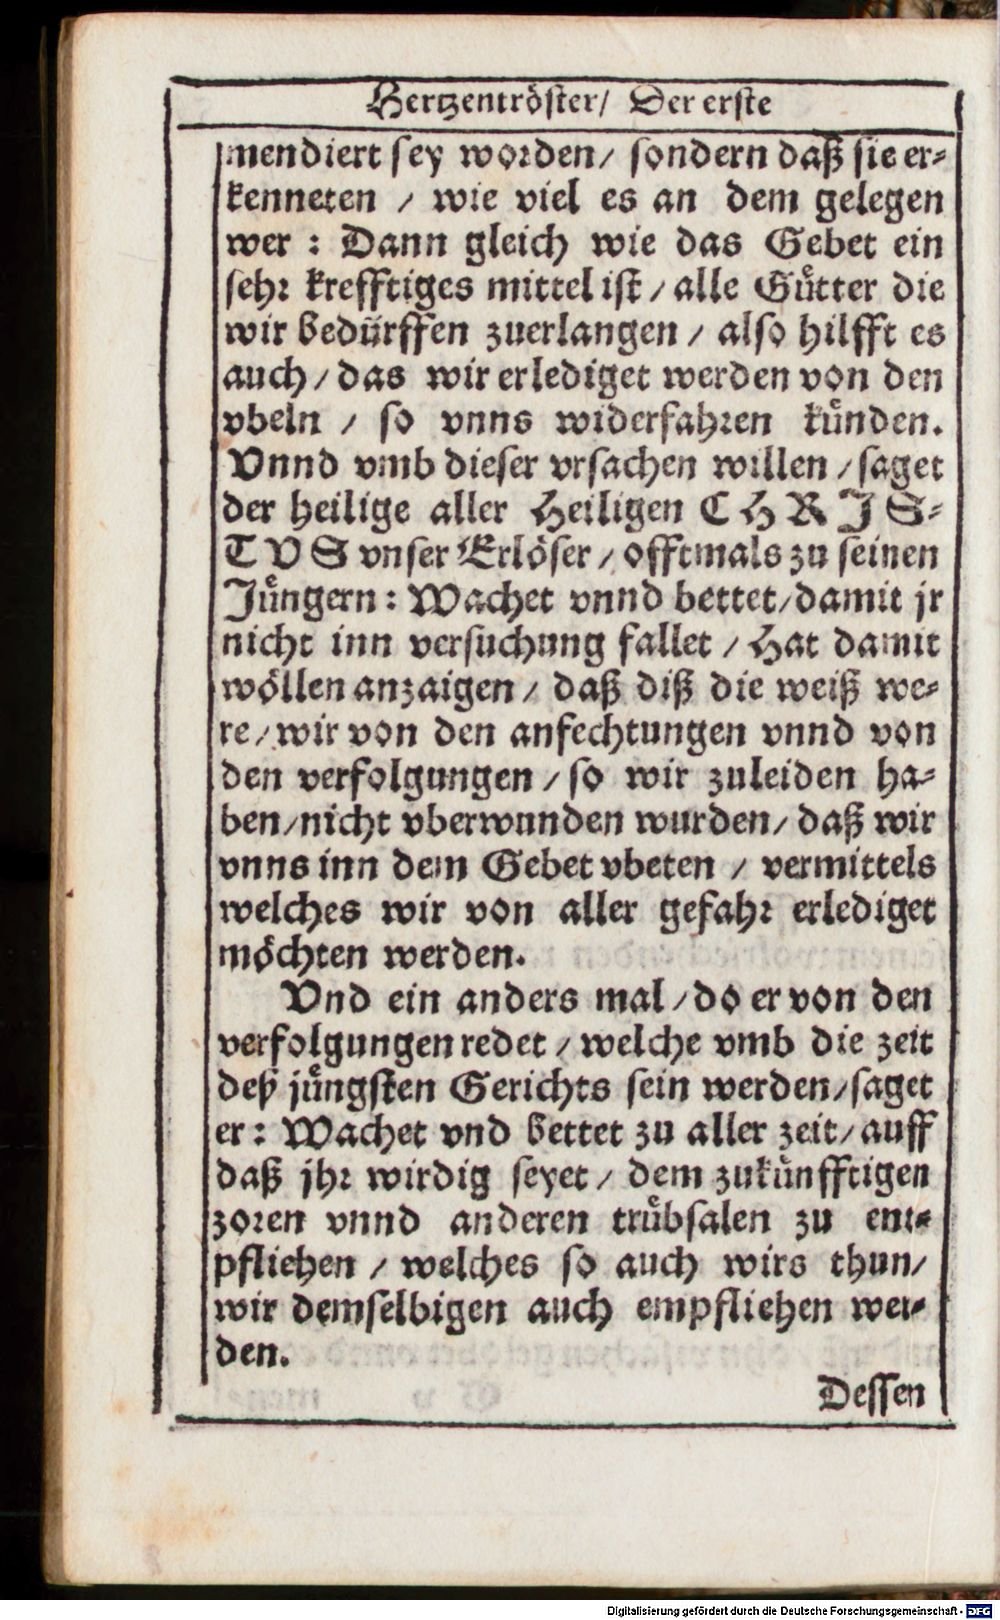 Hertzentröster/ Der erste
mendiert sey worden/ sondern daß sie er-
kenneten / wie viel es an dem gelegen
wer : Dann gleich wie das Gebet ein
sehr krefftiges mittel ist / alle Gütter die
wir bedürffen zuerlangen / also hilfft es
auch / das wir erlediget werden von den
vbeln / so vnns widerfahren künden.
Vnnd vmb dieser vrsachen willen / saget
der heilige aller Heiligen CHRIS-
TVS vnser Erlöser / offtmals zu seinen
Jüngern : Wachet vnnd bettet/ damit jr
nicht inn versuchung fallet / Hat damit
wöllen anzaigen / daß diß die weiß we-
re / wir von den anfechtungen vnnd von
den verfolgungen / so wir zuleiden ha-
ben/ nicht vberwunden wurden/ daß wir
vnns inn dem Gebet vbeten / vermittels
welches wir von aller gefahr erlediget
möchten werden.
Vnd ein anders mal / do er von den
verfolgungen redet / welche vmb die zeit
deß jüngsten Gerichts sein werden/ saget
er : Wachet vnd bettet zu aller zeit/ auff
daß jhr wirdig seyet / dem zukünfftigen
zoren vnnd anderen trübsalen zu ent-
pfliehen / welches so auch wirs thun/
wir demselbigen auch empfliehen wer-
den.
Dessen
Digitalisierung gefördert durch die Deutsche Forschungsgemeinschaft - DFG